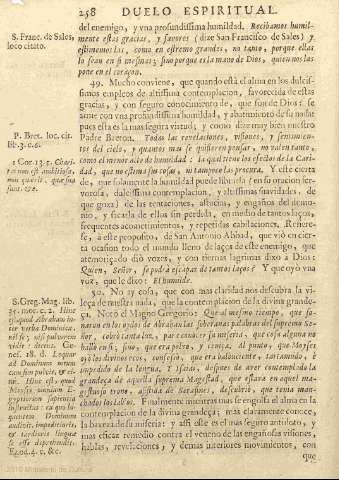 258 DUELO ESPIRITUAL
del enemigo, y vna profundissima humildad. Recibamos humil-
mente estas gracias, y favores (dize San Francisco de Sales) y
estimemoslas, como en estremo grandes, no tanto, porque ellas
lo sean en si mesmas; sino porque es la mano de Dios, quien nos las
pone en el coraçon.
S. Franc. de Sales
loco citato.
49. Mucho conviene, que quando está el alma en los dulcis-
simos empleos de altissima contemplacion, favorecida de estas
gracias, y con seguro conocimiento, de que son de Dios: se
ame con vna profundissima humildad, y abatimiento de su nada:
pues esta es la mas segura virtud; y como dize muy bien nuestro
Padre Breton. Todas las revelaciones, visiones, y sentimien-
tos del cielo, y quantos mas se quisieren pensar, no valen tanto,
como el menor acto de humildad: la qual tiene los efectos de la Cari-
dad, que no estima sus cosas, ni tampoco las procura. Y este cierta
de, que solamente la humildad puede librarle (en su oracion fer-
vorosa, dulcissima contemplacion, y altissimas suavidades, de
que goza) de las tentaciones, astucias, y engaños del demo-
nio, y sacarla de ellos sin perdida, en medio de tantos laços,
frequentes acometimientos, y repetidas cabilaciones. Refiere-
se, à este proposito, de San Antonio Abbad, que viò en cierta
ocasion todo el mundo lleno de laços de este enemigo, que
atemorizado diò vozes, y con tiernas lagrimas dixo à Dios:
Quien, Señor, se podrà escapar de tantos laços? Y que oyò vna
voz, que le dixo: El humilde.
P. Bret. loc. cit.
lib. 3. c. 6.
1 Cor. 13. 5. Chari-
tas non est ambitiosa,
non quærit, quæ sua
sunt. &c.
50. No ay cosa, que con mas claridad nos descubra la vi-
leça de nuestra nada, que la contemplacion de la divina grande-
ça. Notò el Magno Gregorio: Que al mesmo tiempo, que so-
naron en los oydos de Abrahan las soberanas palabras del supremo Se-
ñor, cobrò tanta luz, para conocer su miseria, que cosa alguna no
hallò en si, sino, que era polvo, y ceniza. Al punto, que Moyses
oyò las divinas vozes, confessò, que era balbuciente, tartamudo, è
impedido de la lengua. Y Isaias, despues de aver contemplado la
grandeça de aquella suprema Magestad, que estava en aquel ma-
gestuoso trono, assistida de Serafines, descubrio, que tenia man-
chados los labios. Finalmente mientras mas se engolfa el alma en la
contemplacion de la divina grandeça; mas claramente conoce,
la bageza de su miseria: y assi elle es el mas seguro antidoto, y
mas eficaz remedio contra el veneno de las engañosas visiones,
hablas, revelaciones, y demas interiores movimientos, con
que
S. Greg. Mag. lib.
35. mor. c. 2. Hinc
est quod Abraham in-
ter verba Dominica,
nihil se, nisi pulverem
vidit: dicens. Ge-
nes. 18. d. Loquar
ad Dominum meum
cum sim pulvis, & ci-
nis. Hinc est, quod
Moyses
Exod. 4. c. &c.
2010 Ministerio de Cultura